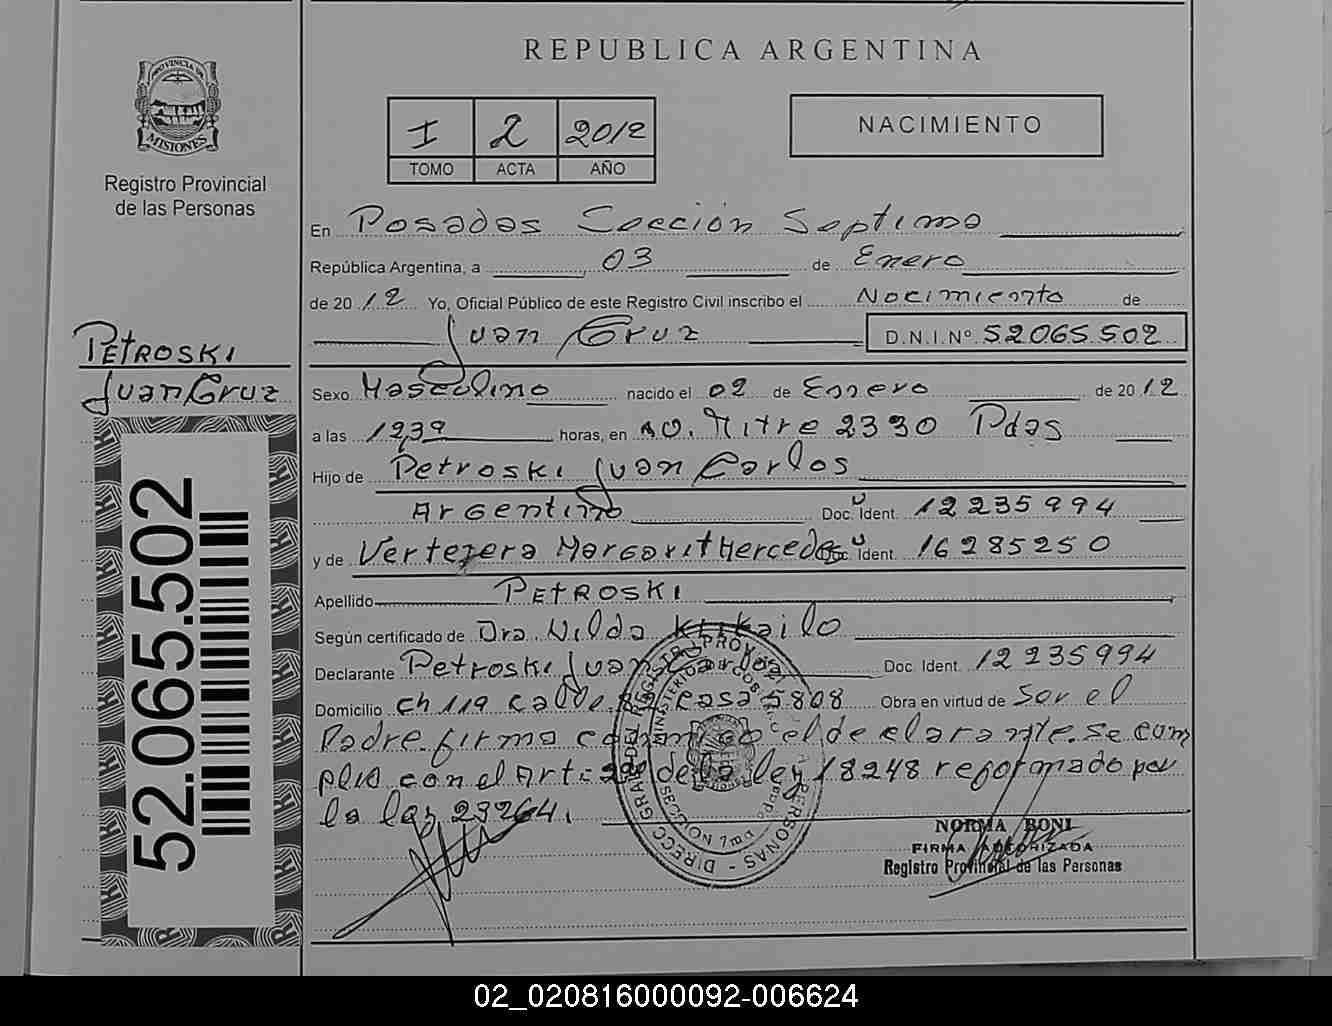 REPUBLICA ARGENTINA
PROVINCIA DE
MISIONES
Registro Provincial
de las Personas
I 2 2012
TOMO ACTA AÑO
NACIMIENTO
En Posadas Sección Septima
República Argentina, a 03 de Enero
de 2012 Yo, Oficial Público de este Registro Civil inscribo el Nacimiento de
Juan Cruz D.N.I.Nº 52065502
PETROSKI
Juan Cruz
52.065.502
Sexo Masculino nacido el 02 de Enero de 2012
a las 12,39 horas, en Av. Mitre 2330 Pdas
Hijo de Petroski Juan Carlos
Argentino Doc. Ident. 12235994
y de Vertezera Margarit Mercedes Doc. Ident. 16285250
Apellido PETROSKI
Según certificado de Dra. Nilda
Declarante Petroski Juan Carlos Doc. Ident. 12235994
Domicilio Ch 119 Calle 89 Casa 5808 Obra en virtud de Ser el
Padre. firma conmigo el declarante. Se cum
plio con el Art: de la ley 18248 reformado por
la ley 23264.
NORMA BONI
FIRMA AUTORIZADA
Registro Provincial de las Personas
02_020816000092-006624